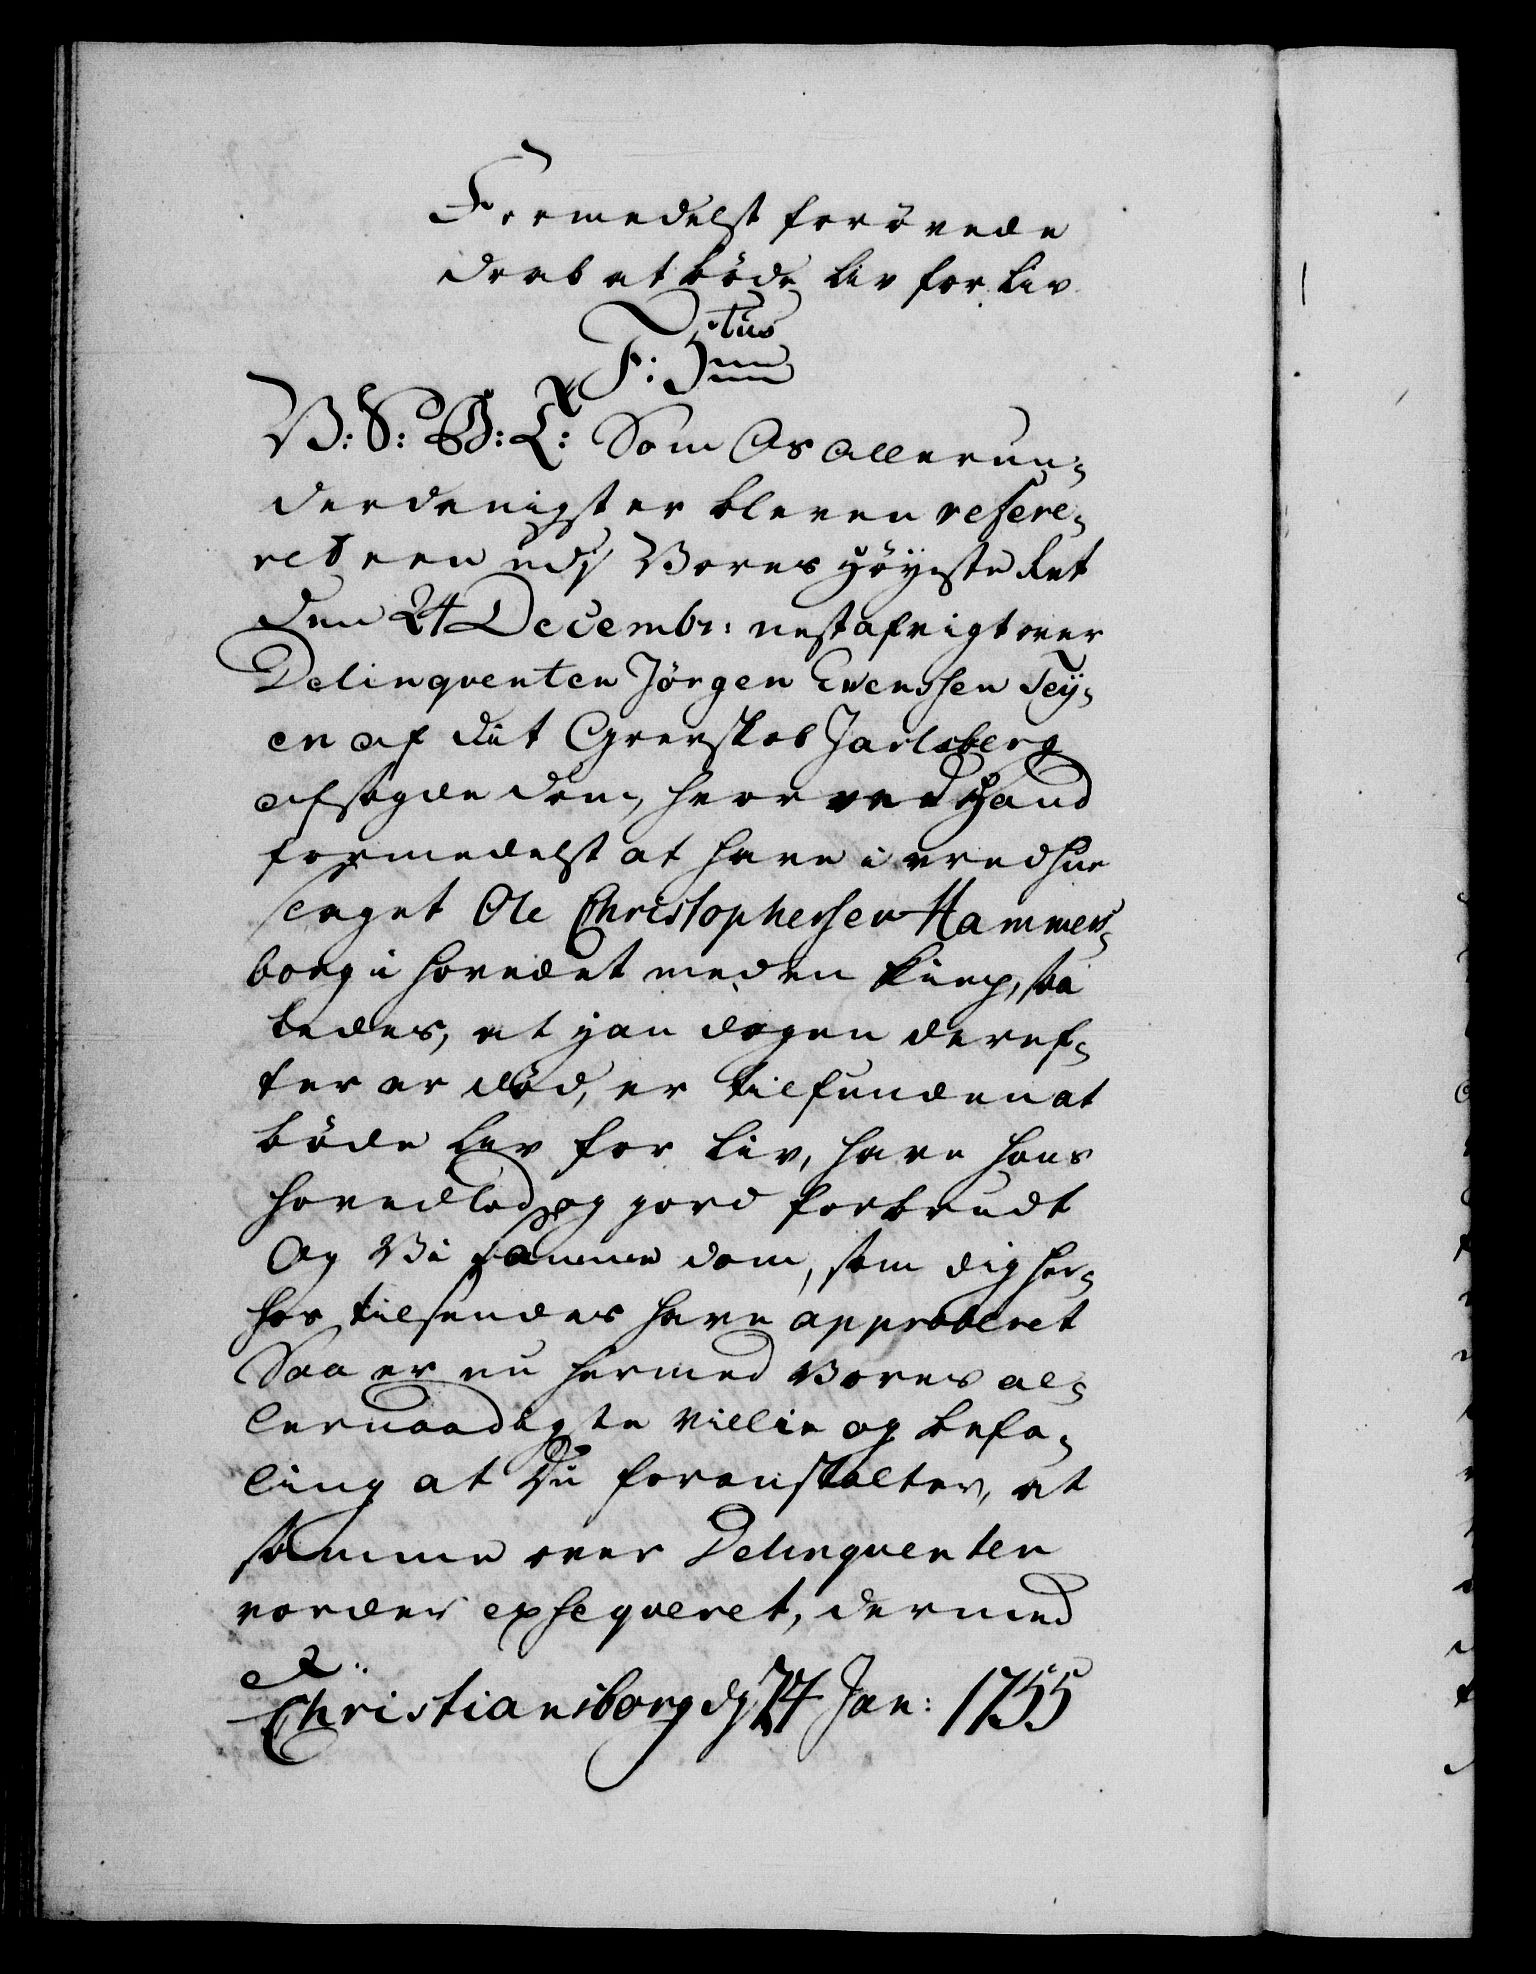 Formedelst forövede
drab at böde Liv for Liv
F: 5tus
V: S: G: T: Som Os allerun-
derdanigst er bleven refere-
ret een udj Vores Höyeste Ret
den 24 Decembr: nestafvigt over
Delinqventen Jörgen Evenssen Tey-
en af dit Grevskab Jarlsberg
afsagde dom, hvorved Hand
formedelst at have i vredhue
slaget Ole Christophersen Hammers-
borg i hovedet med en Kiep, saa
ledes, at han dagen deref-
ter er död, er tilfunden at
böde Liv for Liv, have hans
hovedlod og Jord forbrudt
Og Vi samme dom, som dig her-
hos tilsendes have approberet
Saa er nu hermed Vores al-
lernaadigste Villie og befa-
ling at Du foranstalter, at
samme over Delinqventen
vorder exseqveret, dermed
Christiansborg dj 24 Jan: 1755